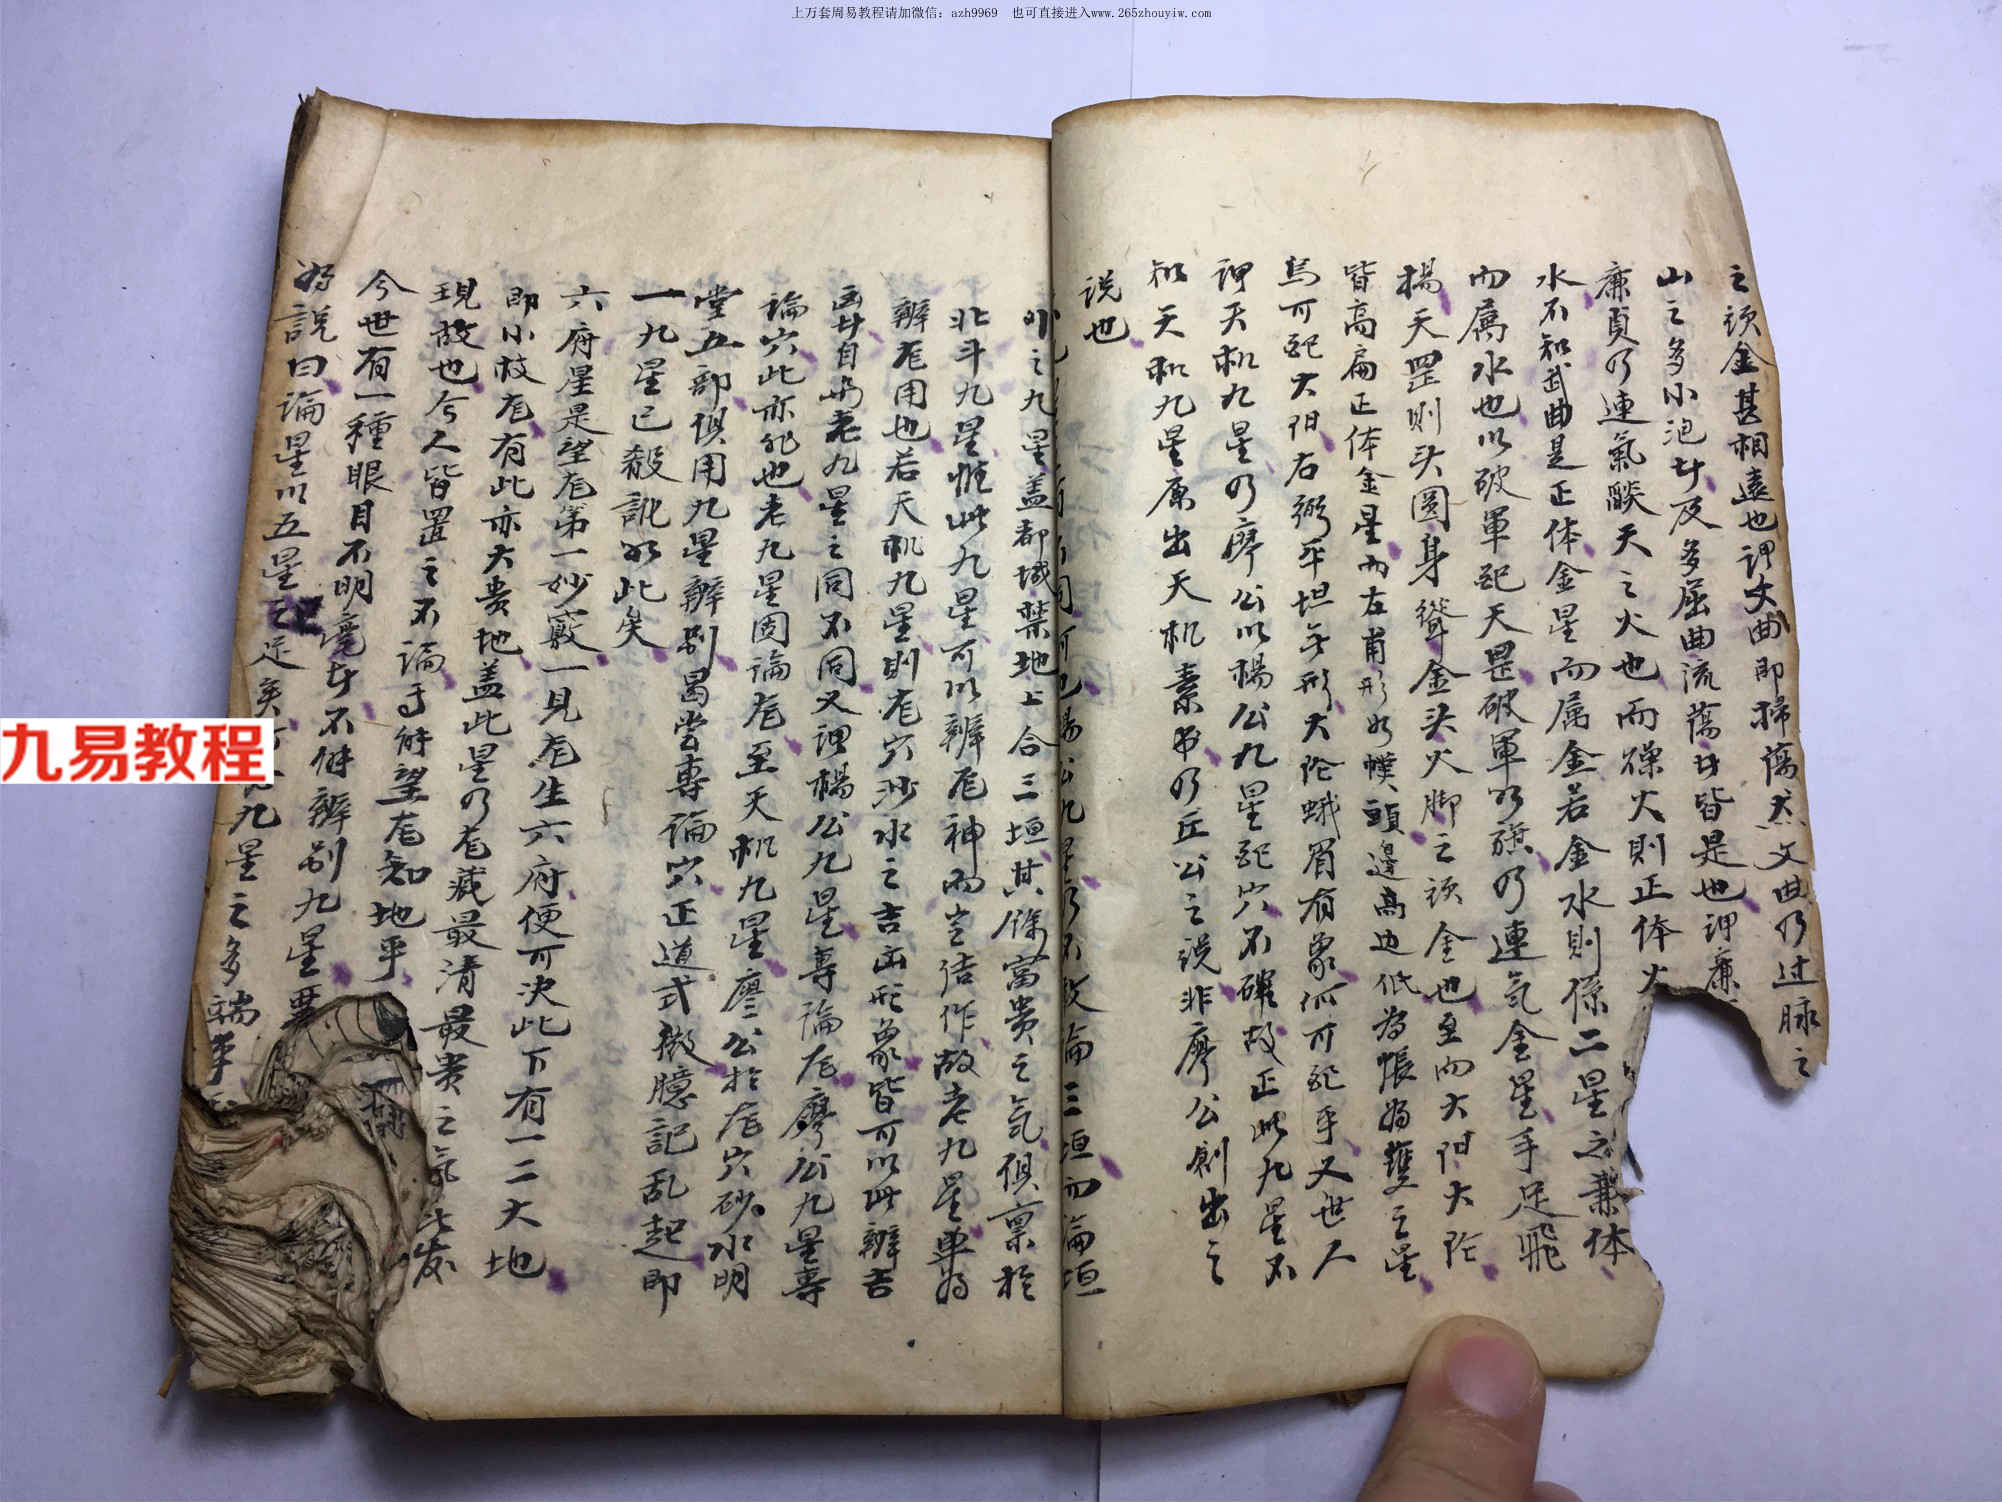 上万套周易教程请加微信：azh9969　也可直接进入www.265zhouyiw.com
之頭金甚相遠也謂文曲即掃蕩文曲乃过脉之
山之多小泡廿及多屈曲流蕩廿皆是也謂廉
廉貞乃連氣燄天之火也而燥火則正体火
水不知武曲是正体金星而属金若金水則係二星之兼体
而属水也以破軍配天罡破軍乃連気金星手足飛
揚天罡則头圆身聳金头火脚之頭金也至而太阳太阴
皆高扁正体金星而左甫形如幞頭邊高边低為帳為雙之星
焉可配太阳右弼平坦無形太阴蛾眉有象何可配乎又世人
謂天机九星乃廖公以楊公九星配穴不確故正此九星不
知天机九星原出天机素书乃丘公之説非廖公創出之
説也
可也楊公九星乃不改論三垣而論垣
外之九星盖都城禁地上合三垣其餘富贵之气俱禀於
北斗九星惟此九星可以辨龙神而岂結作故老九星单為
辨龙用也若天机九星則龙穴沙水之吉凶形象皆可以此辨吉
凶廿自与老九星之同不同又謂楊公九星專論龙廖公九星專
論穴此亦非也老九星固論龙至天机九星廖公於龙穴砂水明
堂五部俱用九星辨别曷尝專論穴正道式微臆記乱起即
一九星已殽訛如此矣
六府星是望龙第一妙竅一見龙生六府便可决此下有一二大地
即小枝龙有此亦大贵地盖此星乃龙藏最清最贵之气发
現故也今人皆置之不論于觧望龙知地乎
今世有一種眼目不明毫廿不觧辨别九星
為説曰論星以五星足矣九星之多端
九易教程